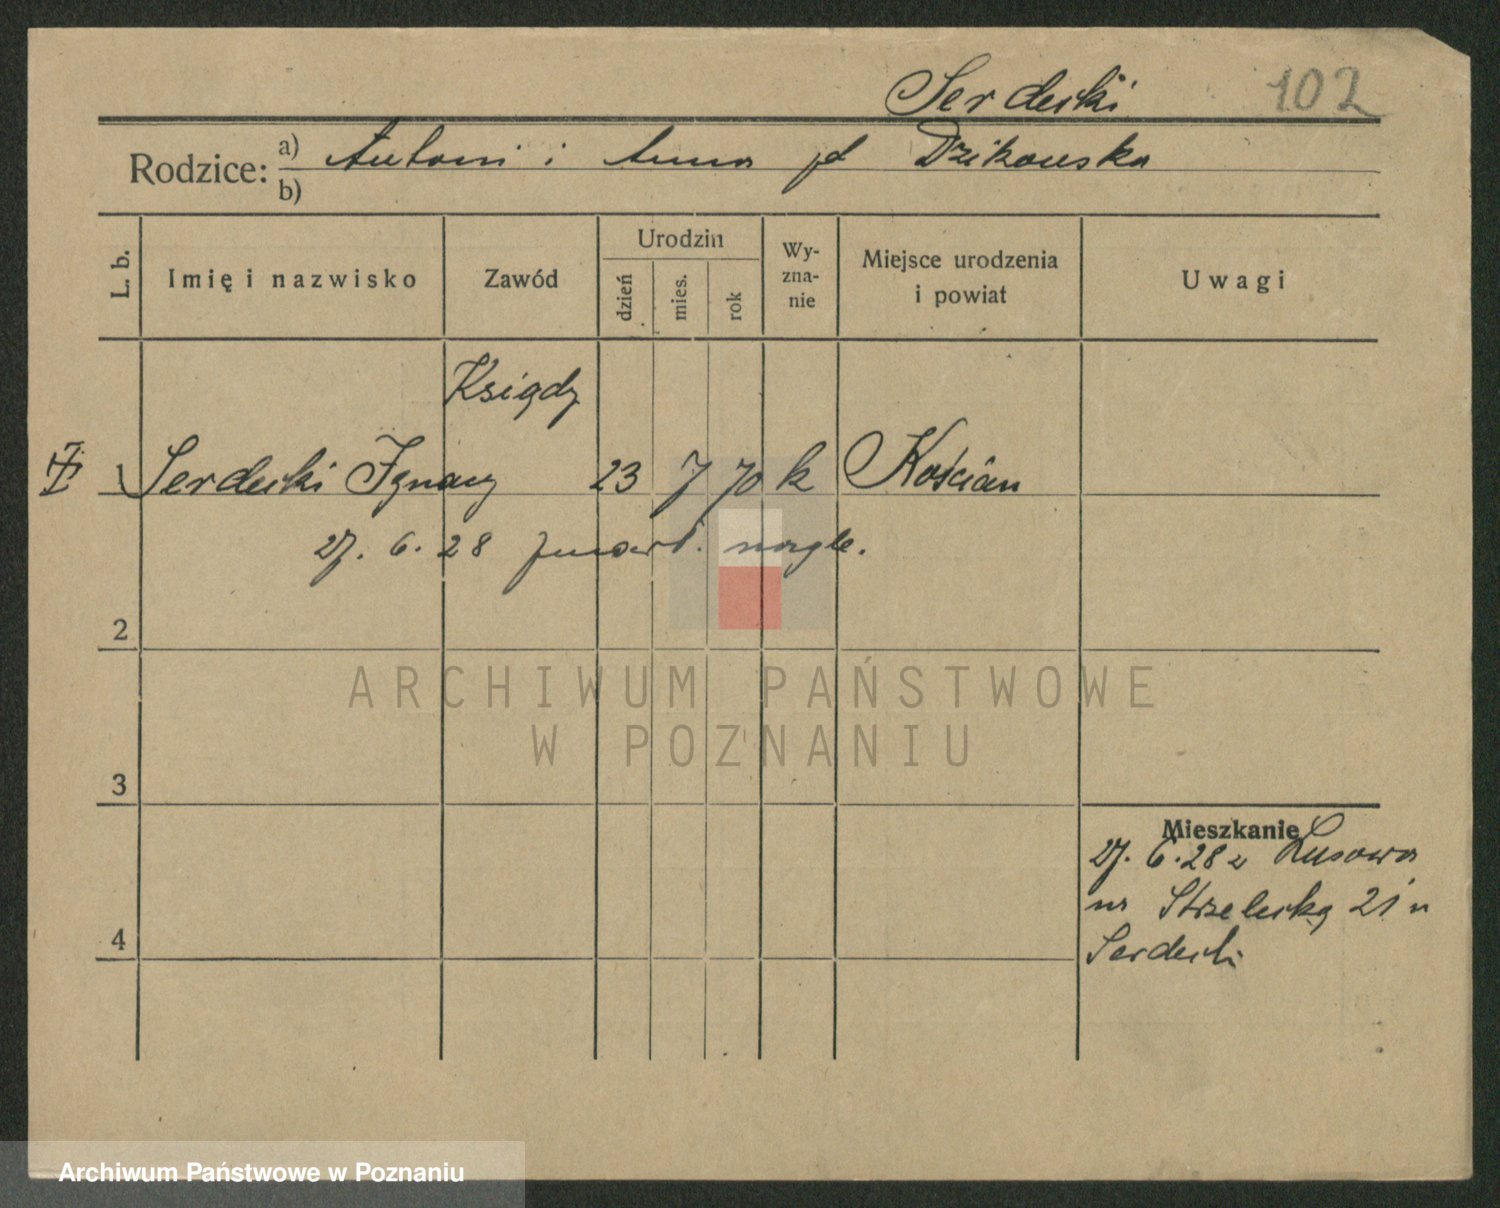 Serdecki 102
Rodzice: a) Antoni i Anna Dzikowska
b)
L. b. Imię i nazwisko Zawód Urodzin dzień mies. rok Wy-zna-nie Miejsce urodzenia i powiat Uwagi
Ksiądz
1 Serdecki Ignacy 23 7 70 k Kościan
27. 6. 28 zmarł. nagle.
2
ARCHIWUM PAŃSTWOWE
W POZNANIU
3
Mieszkanie
27. 6. 28 z Lusowa
na Strzelecką 21 u
Serdecki
4
Archiwum Państwowe w Poznaniu